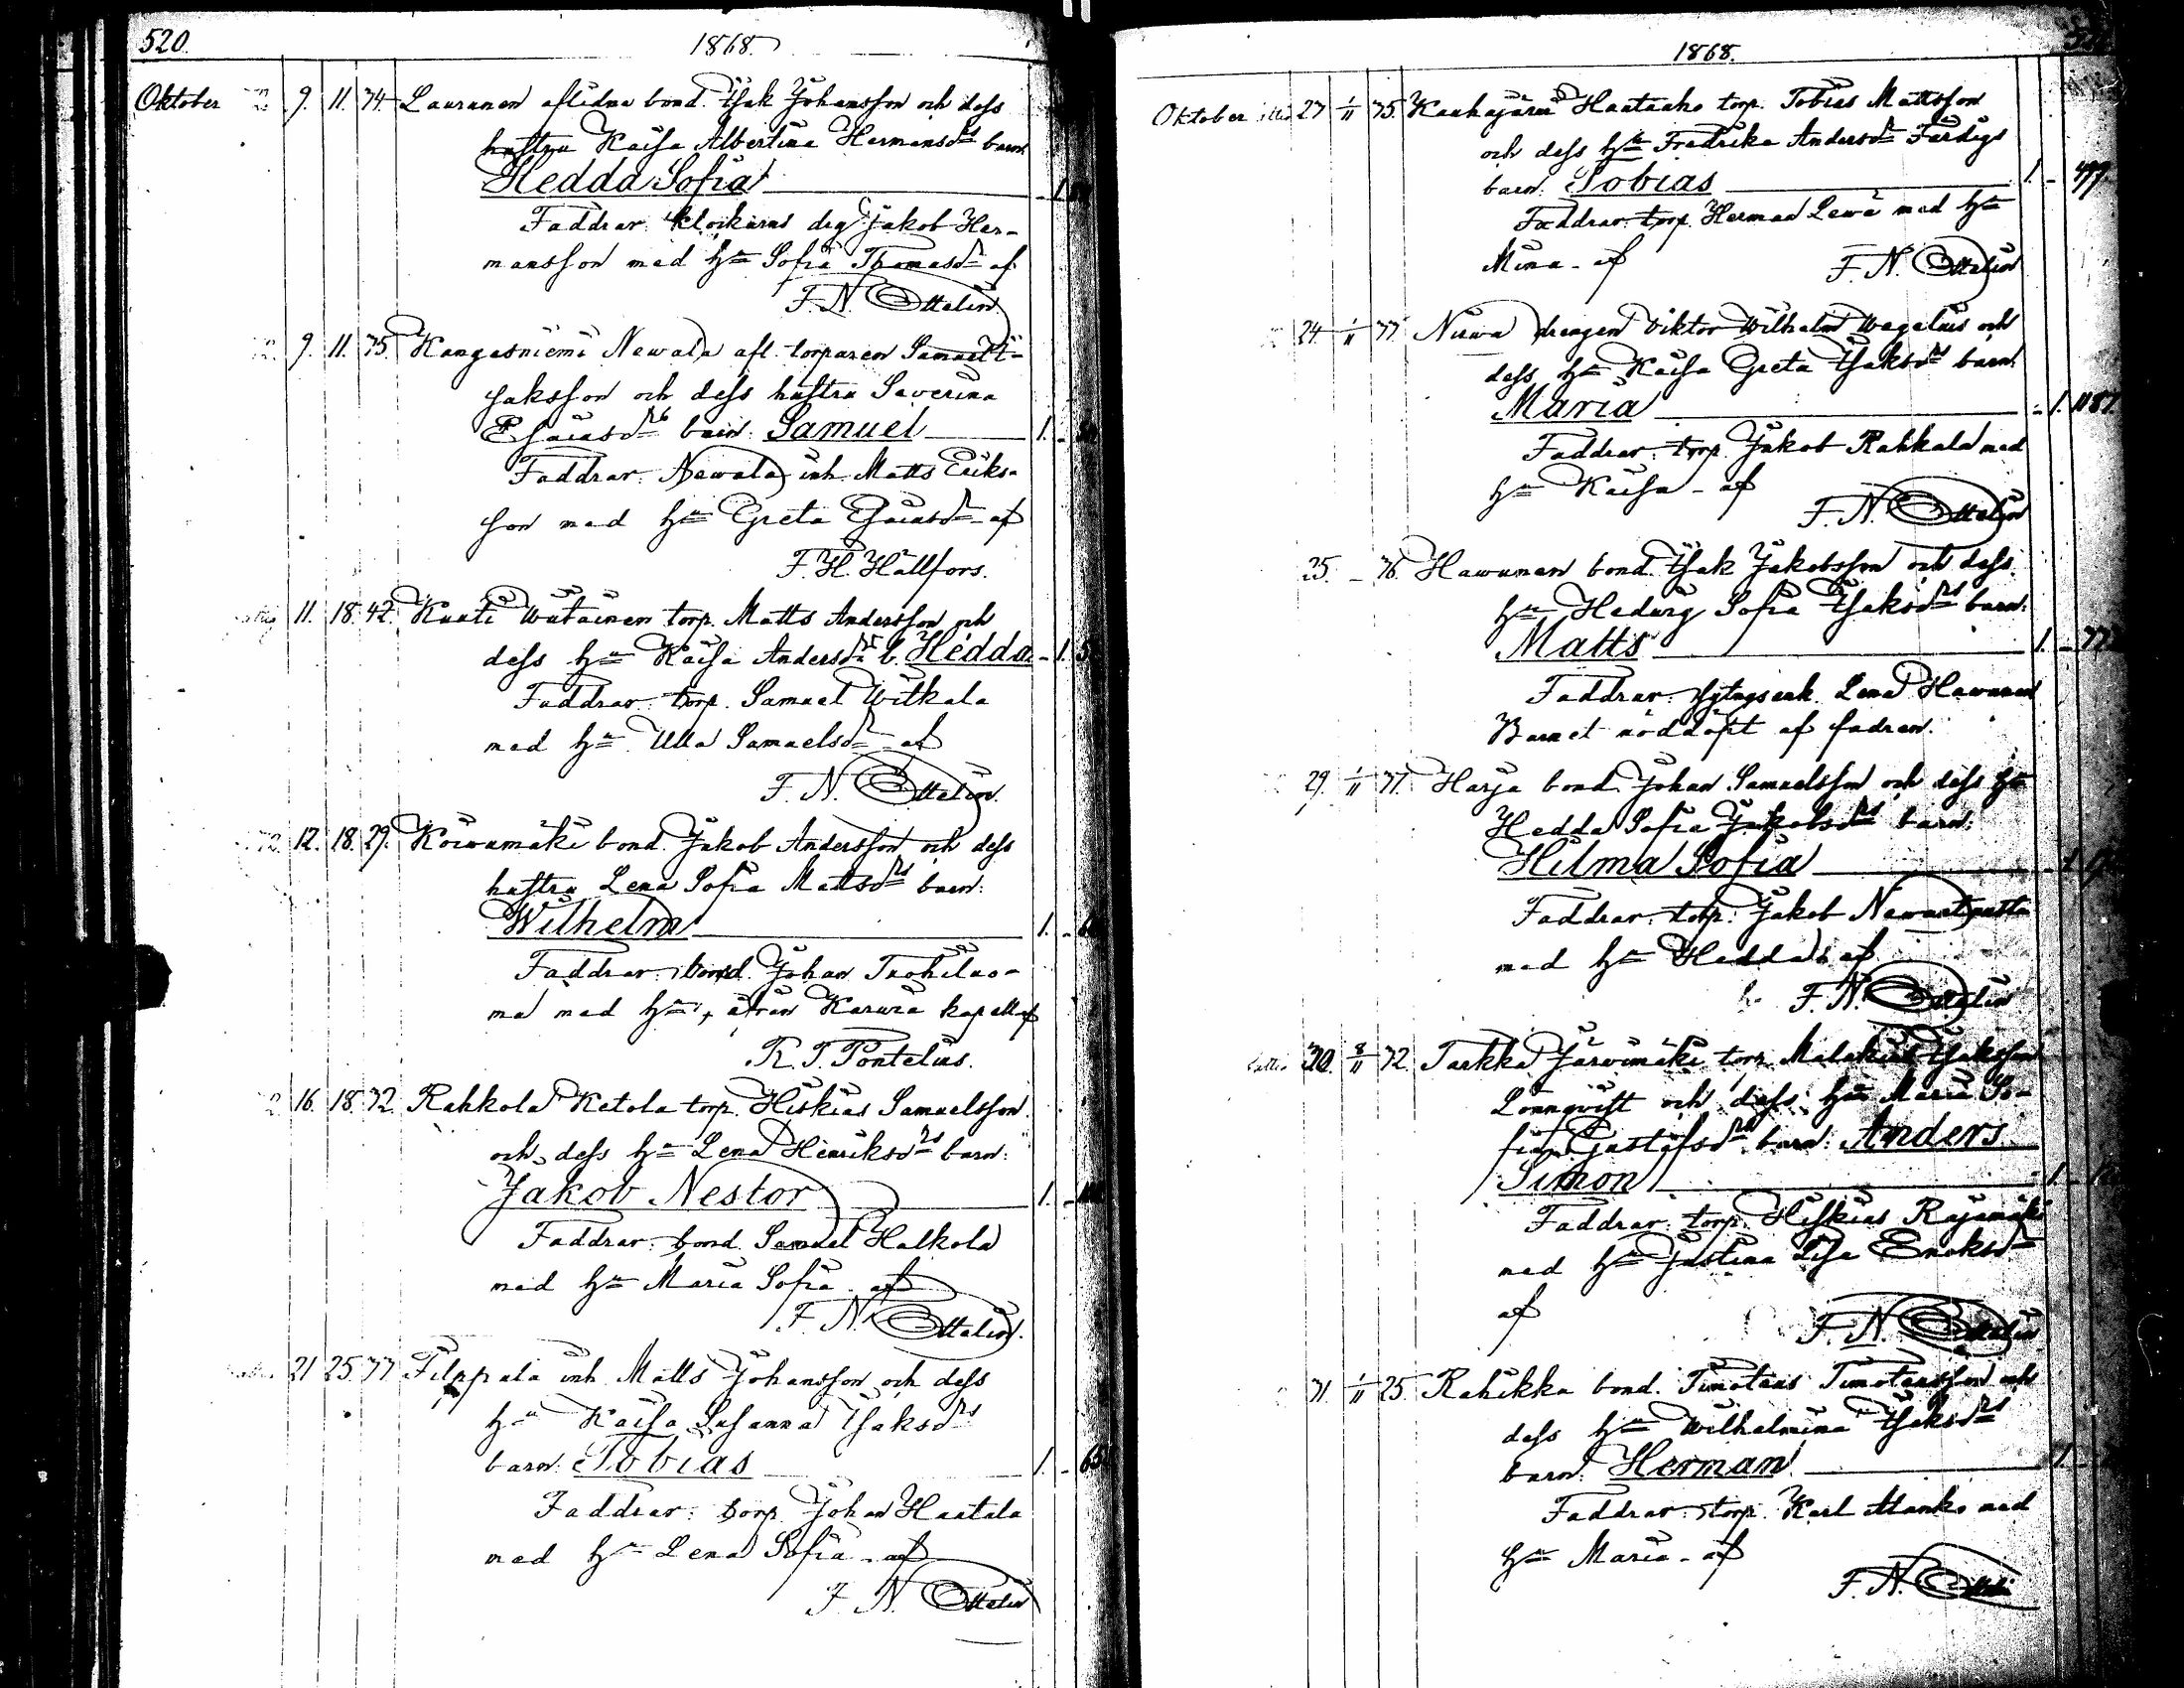 520.
1868.
Oktober 9. 11. 34. Laurunen aflidne bond. Isak Johansson och dess
hustru Kaisa Albertina Hermansdrs barn
Hedda Sofia 1.
Faddrar: klockarns drg Jakob Her-
mansson med hu Sofia Thomasdr af
F. N. Ottelin.
9. 11. 35. Kangasniemi Newala afl. torparen Samuel I-
saksson och dess hustru Severina
Esaiasdrs barn: Samuel 1.
Faddrar: Newala inh. Matts Eriks-
son med hu Greta Esaiasdr af
F. H. Hällfors.
11. 18. 42. Kuuti Wutainen torp. Matts Andersson och
dess hu Kaisa Andersdrs b. Hedda 1.
Faddrar: torp. Samuel Witkala
med hu Ulla Samuelsdr af
F. N. Ottelin.
12. 18. 29. Koiwumäki bond. Jakob Andersson och dess
hustru Lena Sofia Mattsdrs barn:
Wilhelm 1.
Faddrar: bond. Johan Tuohiluo-
ma med hu, ifrån Karwia kapell af
R. T. Pontelius.
16. 18. 32. Rahkola Ketola torp. Hiskias Samuelsson
och dess hu Lena Henriksdrs barn:
Jakob Nestor 1.
Faddrar: bond. Samuel Halkola
med hu Maria Sofia af
F. N. Ottelin.
21 25. 37 Filppula inh. Matts Johansson och dess
hu Kaisa Susanna Isaksdrs
barn: Tobias 1.
Faddrar: torp. Johan Haatala
med hu Lena Sofia af
F. N. Ottelin
1868.
Oktober 27 1/11 35. Kauhajärwi Haataoho torp. Tobias Mattsson
och dess hu Fredrika Andersdr Färdigs
barn: Tobias 1.
Faddrar: torp. Herman Lewä med hu
Mina af F. N. Ottelin
24. 1/11 37. Nirwa drengen Viktor Wilhelm Wegelius och
dess hu Kaisa Greta Isaksdrs barn:
Maria 1.
Faddrar: torp. Jakob Rahkala med
hu Kaisa af
F. N. Ottelin
25. - 36. Hawunen bond. Isak Jakobsson och dess
hu Hedwig Sofia Isaksdrs barn:
Matts 1.
Faddrar: sytngsenk. Lena Hawunen
Barnet nöddöpt af fadren.
29. 1/11 31. Harja bond. Johan Samuelsson och dess hu
Hedda Sofia Jakobsdrs barn:
Hilma Sofia
Faddrar: torp. Jakob
med hu Hedda af
F. N. Ottelin
30. 8/11 32. Tarkka Järwimäki torp. Malakias Isaksson
Lönnqvist och dess hu Maria So-
fia Gustafsdrs barn: Anders
Simon 1.
Faddrar: torp. Hiskias Rajamäki
med hu Justina Lisa Enoksdr
af
F. N. Ottelin
31. 1/11 25. Rahikka bond. Timoteus Timoteusson och
dess hu Wilhelmina Isaksdrs
barn: Herman 1.
Faddrar: torp. Karl Manko med
hu Maria af
F. N. Ottelin